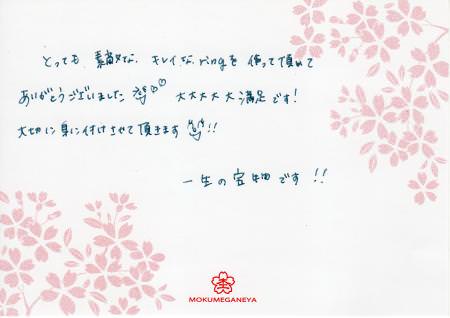 とっても 素敵な、キレイな、ringを 作って頂けて
ありがとうございました 大大大大大満足です!
大切に身に付けさせて頂きます!!
一生の宝物です!!
MOKUMEGANEYA